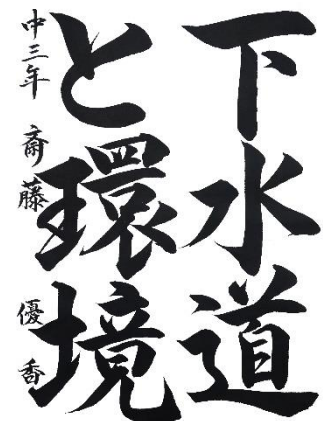 下水道
と環境
中三年 斎藤 優香